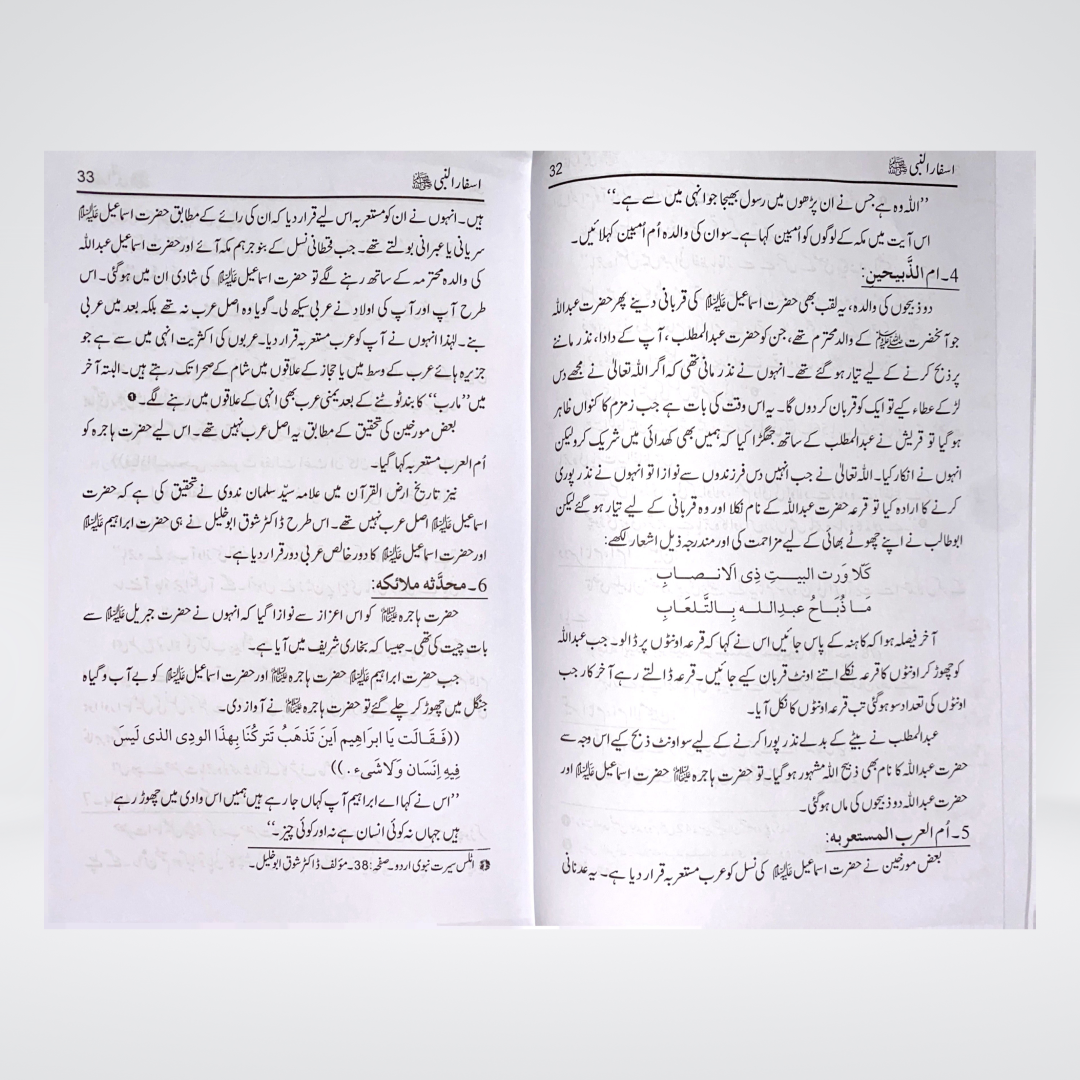 اسفار النبی ﷺ 32
’’اللہ وہ ہے جس نے ان پڑھوں میں رسول بھیجا جو انہی میں سے ہے۔‘‘
اس آیت میں مکہ کے لوگوں کو اُمیین کہا ہے۔ سو ان کی والدہ اُم اُمیین کہلائیں۔
4۔ ام الذَّبیحین:
دو ذبیحوں کی والدہ، یہ لقب بھی حضرت اسماعیل علیہ السلام کی قربانی دینے پھر حضرت عبداللہ
جو آنحضرت ﷺ کے والد محترم تھے، جن کو حضرت عبدالمطلب، آپ کے دادا، نذر ماننے
پر ذبح کرنے کے لیے تیار ہو گئے تھے۔ انہوں نے نذر مانی تھی کہ اگر اللہ تعالیٰ نے مجھے دس
لڑکے عطاء کیے تو ایک کو قربان کر دوں گا۔ یہ اس وقت کی بات ہے جب زمزم کا کنواں ظاہر
ہو گیا تو قریش نے عبدالمطلب کے ساتھ جھگڑا کیا کہ ہمیں بھی کھدائی میں شریک کرو لیکن
انہوں نے انکار کیا۔ اللہ تعالیٰ نے جب انہیں دس فرزندوں سے نوازا تو انہوں نے نذر پوری
کرنے کا ارادہ کیا تو قرعہ حضرت عبداللہ کے نام نکلا اور وہ قربانی کے لیے تیار ہو گئے لیکن
ابو طالب نے اپنے چھوٹے بھائی کے لیے مزاحمت کی اور مندرجہ ذیل اشعار لکھے:
کَلّا وَرت البیـتِ ذِی الاَنـصـابِ
مـا ذُبَـاح عبدِالـلـه بِـالتَّـلـعَـابِ
آخر فیصلہ ہوا کہ کاہنہ کے پاس جائیں اس نے کہا کہ قرعہ اونٹوں پر ڈالو۔ جب عبداللہ
کو چھوڑ کر اونٹوں کا قرعہ نکلے اتنے اونٹ قربان کیے جائیں۔ قرعہ ڈالتے رہے آخر کار جب
اونٹوں کی تعداد سو ہو گئی تب قرعہ اونٹوں کا نکل آیا۔
عبدالمطلب نے بیٹے کے بدلے نذر پورا کرنے کے لیے سو اونٹ ذبح کیے اس وجہ سے
حضرت عبداللہ کا نام بھی ذبیح اللہ مشہور ہو گیا۔ تو حضرت ہاجرہ علیہا السلام حضرت اسماعیل علیہ السلام اور
حضرت عبداللہ دو ذبیحوں کی ماں ہو گئی۔
5۔ اُم العرب المستعربہ:
بعض مورخین نے حضرت اسماعیل علیہ السلام کی نسل کو عرب مستعربہ قرار دیا ہے۔ یہ عدنانی
اسفار النبی ﷺ 33
ہیں۔ انہوں نے ان کو مستعربہ اس لیے قرار دیا کہ ان کی رائے کے مطابق حضرت اسماعیل علیہ السلام
سریانی یا عبرانی بولتے تھے۔ جب قحطانی نسل کے بنو جرہم مکہ آئے اور حضرت اسماعیل عبداللہ
کی والدہ محترمہ کے ساتھ رہنے لگے تو حضرت اسماعیل علیہ السلام کی شادی ان میں ہو گئی۔ اس
طرح آپ اور آپ کی اولاد نے عربی سیکھ لی۔ گویا وہ اصل عرب نہ تھے بلکہ بعد میں عربی
بنے۔ لہٰذا انہوں نے آپ کو عرب مستعربہ قرار دیا۔ عربوں کی اکثریت انہی میں سے ہے جو
جزیرہ ہائے عرب کے وسط میں یا حجاز کے علاقوں میں شام کے صحرا تک رہتے ہیں۔ البتہ آخر
میں ’’مارب‘‘ کا بند ٹوٹنے کے بعد یمنی عرب بھی انہی کے علاقوں میں رہنے لگے۔ ❶
بعض مورخین کی تحقیق کے مطابق یہ اصل عرب نہیں تھے۔ اس لیے حضرت ہاجرہ کو
اُم العرب مستعربہ کہا گیا۔
نیز تاریخ ارض القرآن میں علامہ سیّد سلمان ندوی نے تحقیق کی ہے کہ حضرت
اسماعیل علیہ السلام اصل عرب نہیں تھے۔ اس طرح ڈاکٹر شوق ابو خلیل نے ہی حضرت ابراہیم علیہ السلام
اور حضرت اسماعیل علیہ السلام کا دور خالص عربی دور قرار دیا ہے۔
6۔ محدَّثہ ملائکہ:
حضرت ہاجرہ علیہا السلام کو اس اعزاز سے نوازا گیا کہ انہوں نے حضرت جبریل علیہ السلام سے
بات چیت کی تھی۔ جیسا کہ بخاری شریف میں آیا ہے۔
جب حضرت ابراہیم علیہ السلام حضرت ہاجرہ علیہا السلام اور حضرت اسماعیل علیہ السلام کو بے آب و گیاہ
جنگل میں چھوڑ کر چلے گئے تو حضرت ہاجرہ علیہا السلام نے آواز دی۔
((فَـقَـالَت یَا ابرَاهِیم اَینَ تَذهَبُ تَترِكُنَا بِهذَا الوَدِی الذی لَیسَ
فِیهِ اِنسَان وَلَاشَیء.))
’’اس نے کہا اے ابراہیم آپ کہاں جا رہے ہیں ہمیں اس وادی میں چھوڑ رہے
ہیں جہاں نہ کوئی انسان ہے نہ اور کوئی چیز۔‘‘
❶ اٹلس سیرت نبوی اردو۔ صفحہ:38۔ مؤلف ڈاکٹر شوق ابو خلیل۔